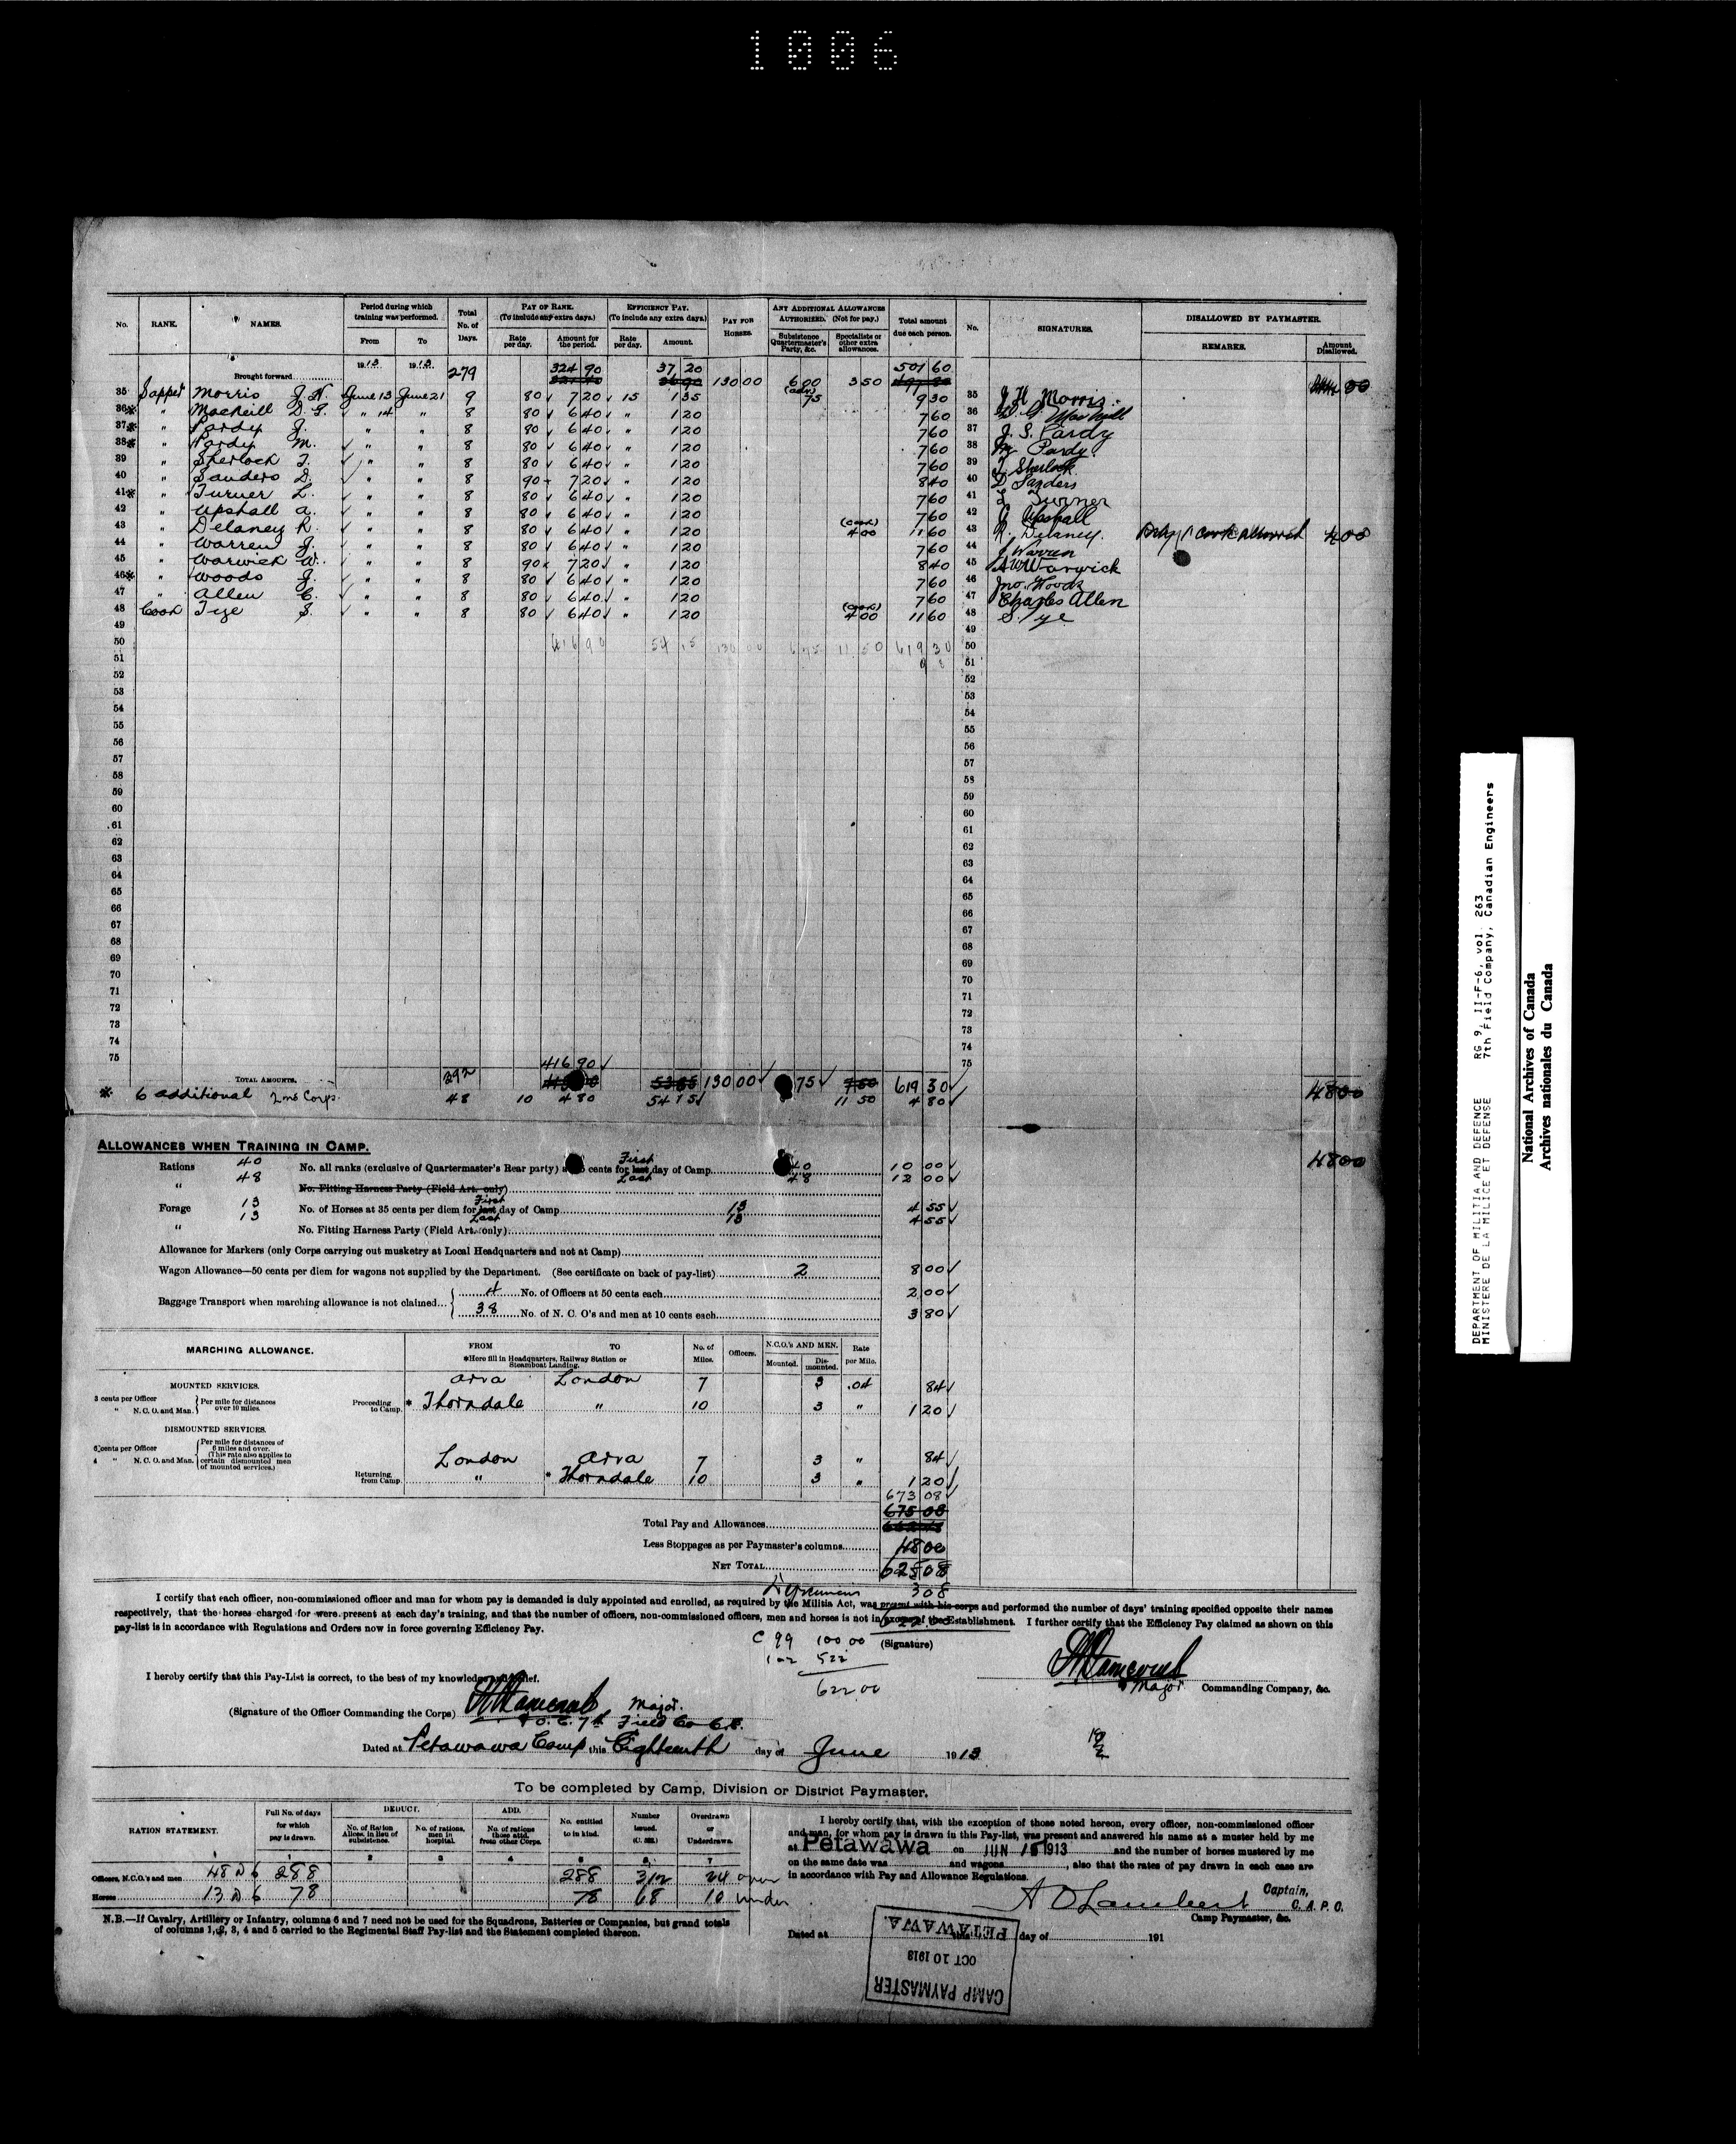 1006
No. RANK. NAMES. Period during which training was performed. Total No. of Days. PAY OF RANK. (To include any extra days.) EFFICIENCY PAY. (To include any extra days.) PAY FOR HORSES. ANY ADDITIONAL ALLOWANCES AUTHORIZED. (Not for pay.) Total amount due each person. No. SIGNATURES. DISALLOWED BY PAYMASTER.
From To Rate per day. Amount for the period. Rate per day. Amount. Subsistence Quartermaster's Party, &c. Specialists or other extra allowances. REMARKS. Amount Disallowed.
1913 1913
Brought forward 279 324 90 37 20 130 00 6 00 3 50 501 60
35 Sapper Morris J.H. June 13 June 21 9 80 7 20 15 1 35 75 9 30 35 J H Morris
36* " MacNeill D.G. " 14 " 8 80 6 40 " 1 20 7 60 36 D. G. MacNeill
37* " Pardy J. " " 8 80 6 40 " 1 20 7 60 37 J. S. Pardy
38* " Pardy M. " " 8 80 6 40 " 1 20 7 60 38 M Pardy
39 " Sherlock T. " " 8 80 6 40 " 1 20 7 60 39 T Sherlock
40 " Sanders D. " " 8 90 7 20 " 1 20 8 40 40 D Sanders
41* " Turner L. " " 8 80 6 40 " 1 20 7 60 41 L Turner
42 " Upshall A. " " 8 80 6 40 " 1 20 7 60 42 Upshall
43 " Delaney R. " " 8 80 6 40 " 1 20 (cook) 4 00 11 60 43 R. Delaney. Only 1 cook allowed 4 00
44 " Warren J. " " 8 80 6 40 " 1 20 7 60 44 J Warren
45 " Warwick W. " " 8 90 7 20 " 1 20 8 40 45 Warwick
46* " Woods J. " " 8 80 6 40 " 1 20 7 60 46 Jno. Woods
47 " Allen C. " " 8 80 6 40 " 1 20 7 60 47 Charles Allen
48 Cook Tye S. " " 8 80 6 40 " 1 20 (cook) 4 00 11 60 48 S. Tye
49 49
50 416 90 54 15 130 00 6 75 11 50 619 30 50
51 51
52 52
53 53
54 54
55 55
56 56
57 57
58 58
59 59
60 60
61 61
62 62
63 63
64 64
65 65
66 66
67 67
68 68
69 69
70 70
71 71
72 72
73 73
74 74
75 75
416 90
TOTAL AMOUNTS. 392 53 85 130 00 75 7 50 619 30 48 00
* 6 additional Corps. 48 10 4 80 54 15 11 50 4 80
ALLOWANCES WHEN TRAINING IN CAMP.
Rations 40 No. all ranks (exclusive of Quartermaster's Rear party) cents for last First day of Camp 40 10 00 48 00
" 48 No. Fitting Harness Party (Field Art. only) Last 48 12 00
Forage 13 No. of Horses at 35 cents per diem for last First day of Camp 13 4 55
" 13 No. Fitting Harness Party (Field Art. only) Last 13 4 55
Allowance for Markers (only Corps carrying out musketry at Local Headquarters and not at Camp)
Wagon Allowance—50 cents per diem for wagons not supplied by the Department. (See certificate on back of pay-list) 2 8 00
Baggage Transport when marching allowance is not claimed
4 No. of Officers at 50 cents each 2 00
38 No. of N. C. O's and men at 10 cents each 3 80
MARCHING ALLOWANCE. FROM TO No. of Miles. Officers. N.C.O.'s AND MEN. Rate per Mile.
*Here fill in Headquarters, Railway Station or Steamboat Landing. Mounted. Dismounted.
MOUNTED SERVICES.
3 cents per Officer
" N. C. O. and Man. Per mile for distances over 10 miles.
Proceeding to Camp.
Arva London 7 3 .04 84
* Thorndale " 10 3 " 1 20
DISMOUNTED SERVICES.
6 cents per Officer
4 " N. C. O. and Man. Per mile for distances of 6 miles and over. (This rate also applies to certain dismounted men of mounted services.)
Returning from Camp.
London Arva 7 3 " 84
" * Thorndale 10 3 " 1 20
673 08
675 08
Total Pay and Allowances
Less Stoppages as per Paymaster's columns 48 00
NET TOTAL 625 08
3 08
I certify that each officer, non-commissioned officer and man for whom pay is demanded is duly appointed and enrolled, as required by the Militia Act, was present with his corps and performed the number of days' training specified opposite their names
respectively, that the horses charged for were present at each day's training, and that the number of officers, non-commissioned officers, men and horses is not in excess of the Establishment. I further certify that the Efficiency Pay claimed as shown on this
pay-list is in accordance with Regulations and Orders now in force governing Efficiency Pay.
622 00
C 99 100 00 (Signature)
102 522
622 00
Major Commanding Company, &c.
I hereby certify that this Pay-List is correct, to the best of my knowledge and belief.
(Signature of the Officer Commanding the Corps) Major.
O.C. 7th Field Co C.E.
Dated at Petawawa Camp this Eighteenth day of June 1913
To be completed by Camp, Division or District Paymaster.
RATION STATEMENT. Full No. of days for which pay is drawn. DEDUCT. ADD. No. entitled to in kind. Number issued. Overdrawn or Underdrawn.
No. of Ration Allces. in lieu of subsistence. No. of rations, men in hospital. No. of rations those attd. from other Corps.
1 2 3 4 5 6 7
Officers, N.C.O.'s and men 48 D 6 288 288 312 24 over
Horses 13 D 6 78 78 68 10 under
N.B.—If Cavalry, Artillery or Infantry, columns 6 and 7 need not be used for the Squadrons, Batteries or Companies, but grand totals
of columns 1, 2, 3, 4 and 5 carried to the Regimental Staff Pay-list and the Statement completed thereon.
I hereby certify that, with the exception of those noted hereon, every officer, non-commissioned officer
and man, for whom pay is drawn in this Pay-list, was present and answered his name at a muster held by me
at Petawawa on JUN 1913 and the number of horses mustered by me
on the same date was and wagons , also that the rates of pay drawn in each case are
in accordance with Pay and Allowance Regulations.
A O Lambert Captain, C.A.P.C.
Camp Paymaster, &c.
Dated at this day of 191
CAMP PAYMASTER
OCT 10 1913
PETAWAWA.
DEPARTMENT OF MILITIA AND DEFENCE RG 9, II-F-6, vol. 263
MINISTERE DE LA MILICE ET DEFENSE 7th Field Company, Canadian Engineers
National Archives of Canada
Archives nationales du Canada